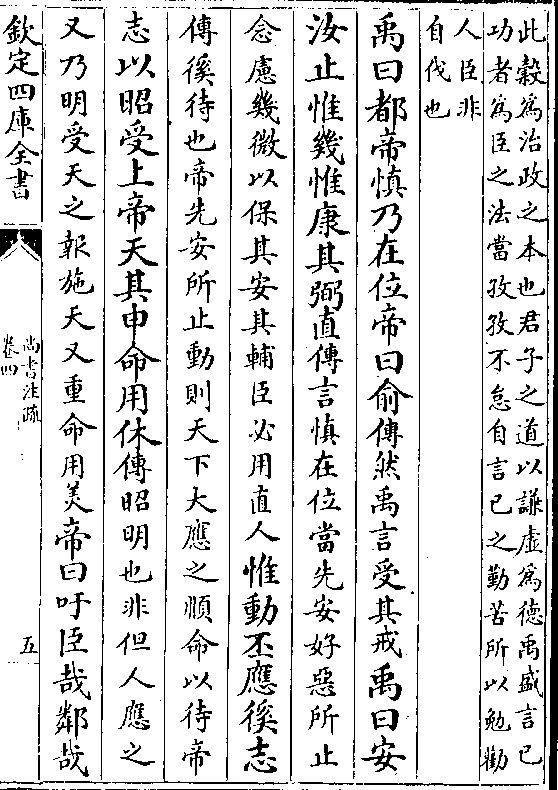 此穀為治政之本也君子之道以謙虚為德禹盛言已
功者為臣之法當孜孜不怠自言已之勤苦所以勉勸
人臣非
自伐也
禹曰都帝慎乃在位帝曰俞傳然禹言受其戒禹曰安
汝止惟幾惟康其弼直傳言慎在位當先安好惡所止
念慮幾微以保其安其輔臣必用直人惟動丕應徯志
傳徯待也帝先安所止動則天下大應之順命以待帝
志以昭受上帝天其申命用休傳昭明也非但人應之
又乃明受天之報施天又重命用美帝曰吁臣哉鄰哉
欽定四庫全書
尚書注疏
卷四
五